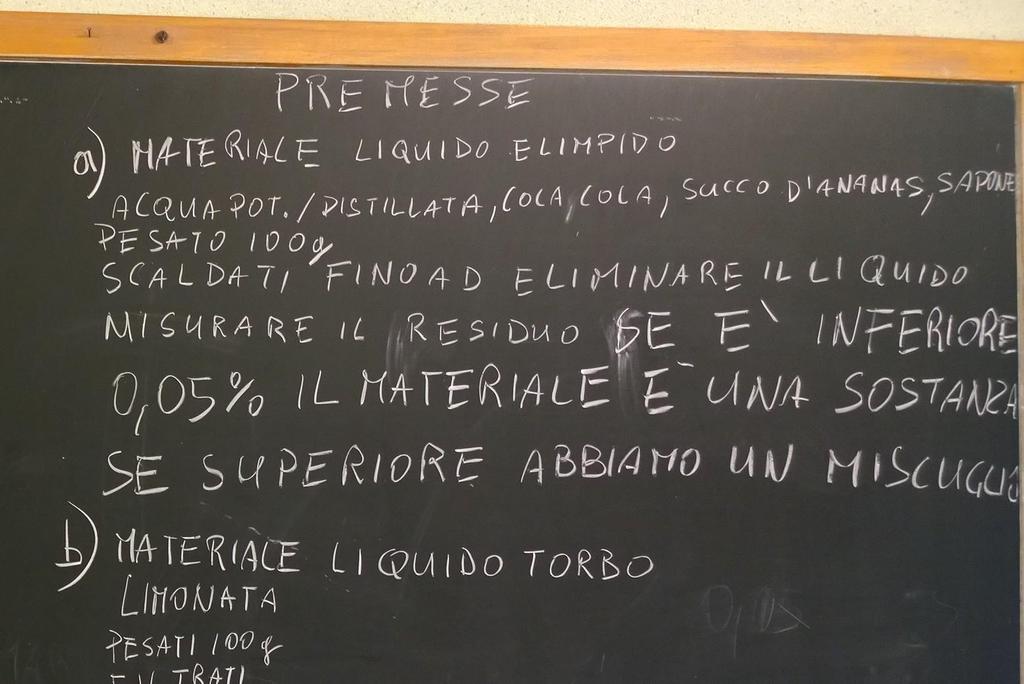 PREMESSE
a) MATERIALE LIQUIDO E LIMPIDO
ACQUA POT./DISTILLATA, COCA, COLA, SUCCO D'ANANAS, SAPONE
PESATO 100g
SCALDATI FINO AD ELIMINARE IL LIQUIDO
MISURARE IL RESIDUO SE E' INFERIORE
0,05% IL MATERIALE E' UNA SOSTANZA
SE SUPERIORE ABBIAMO UN MISCUGLIO
b) MATERIALE LIQUIDO TORBO
LIMONATA
PESATI 100g
FILTRATI